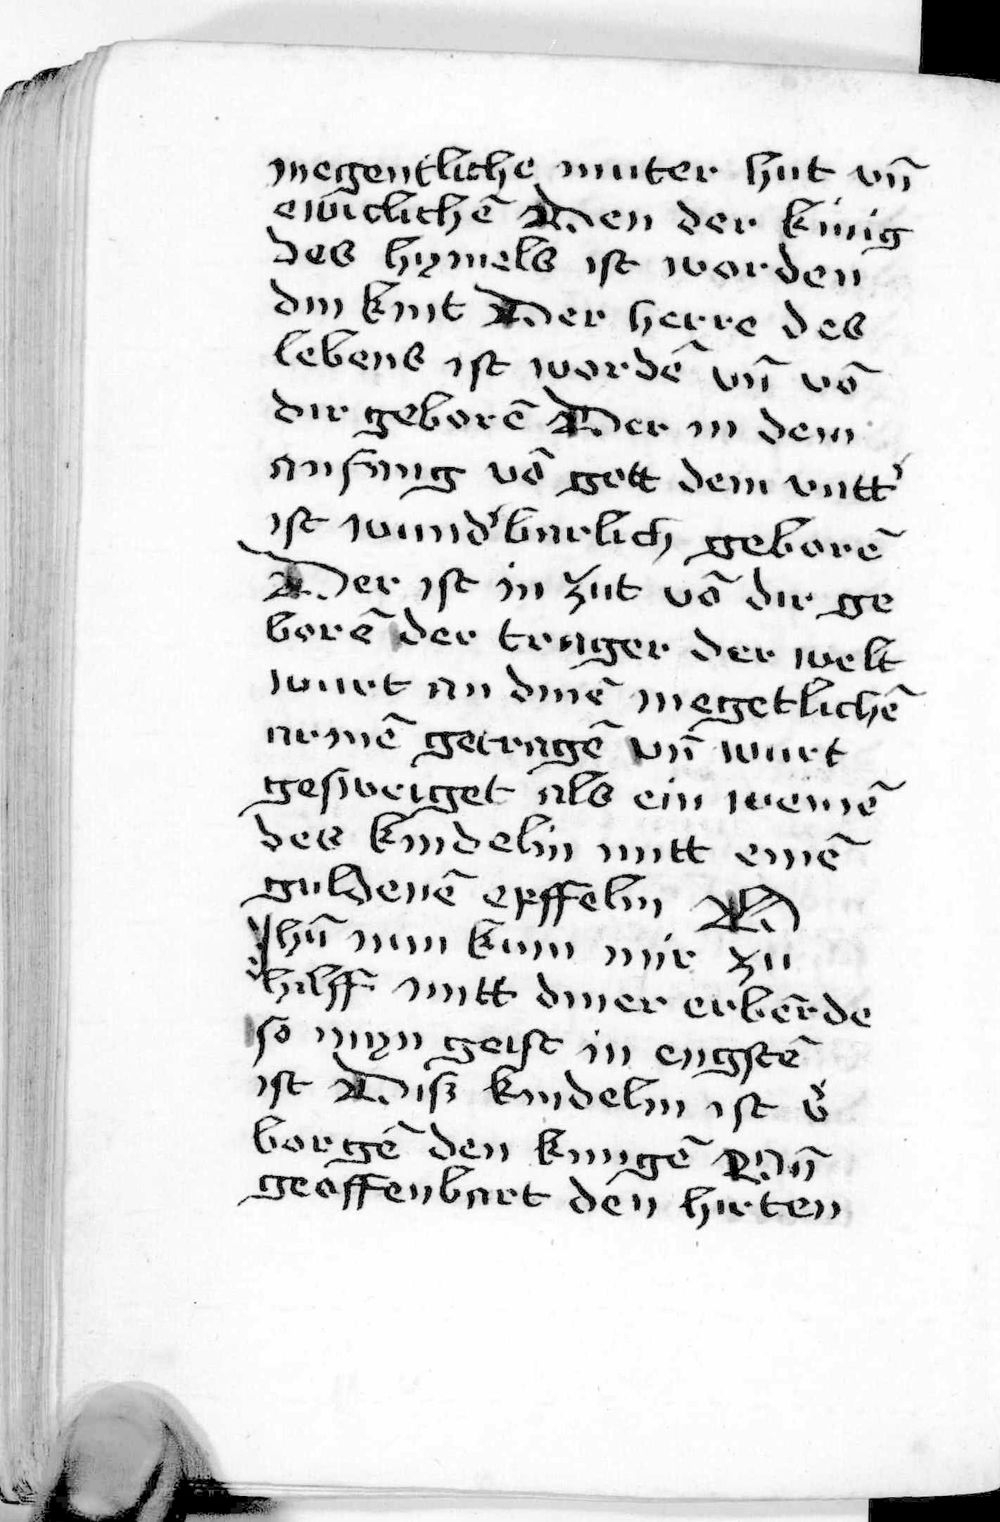 megentliche muter hut vñ
ewiclichē Den der kúnig
des hymels ist worden
din kint Der herre des
lebens ist wordē vñ vō
dir geborē Der in dem
anfang vō gott dem vatt᾽
ist wund᾽barlich geborē
Der ist in zit vō dir ge
borē der trager der welt
wurt an dinē megetlichē
armē getragē vñ wurt
gesweiget als ein weinē
des kindelin mitt einē
guldenē epffelin
Jhū nun kum mir zu
hilff mitt diner erbermde
so myn geist in engstē
ist Diß kindelin ist v᾽
borgē den kungē Vñ
geoffenbart den hirten